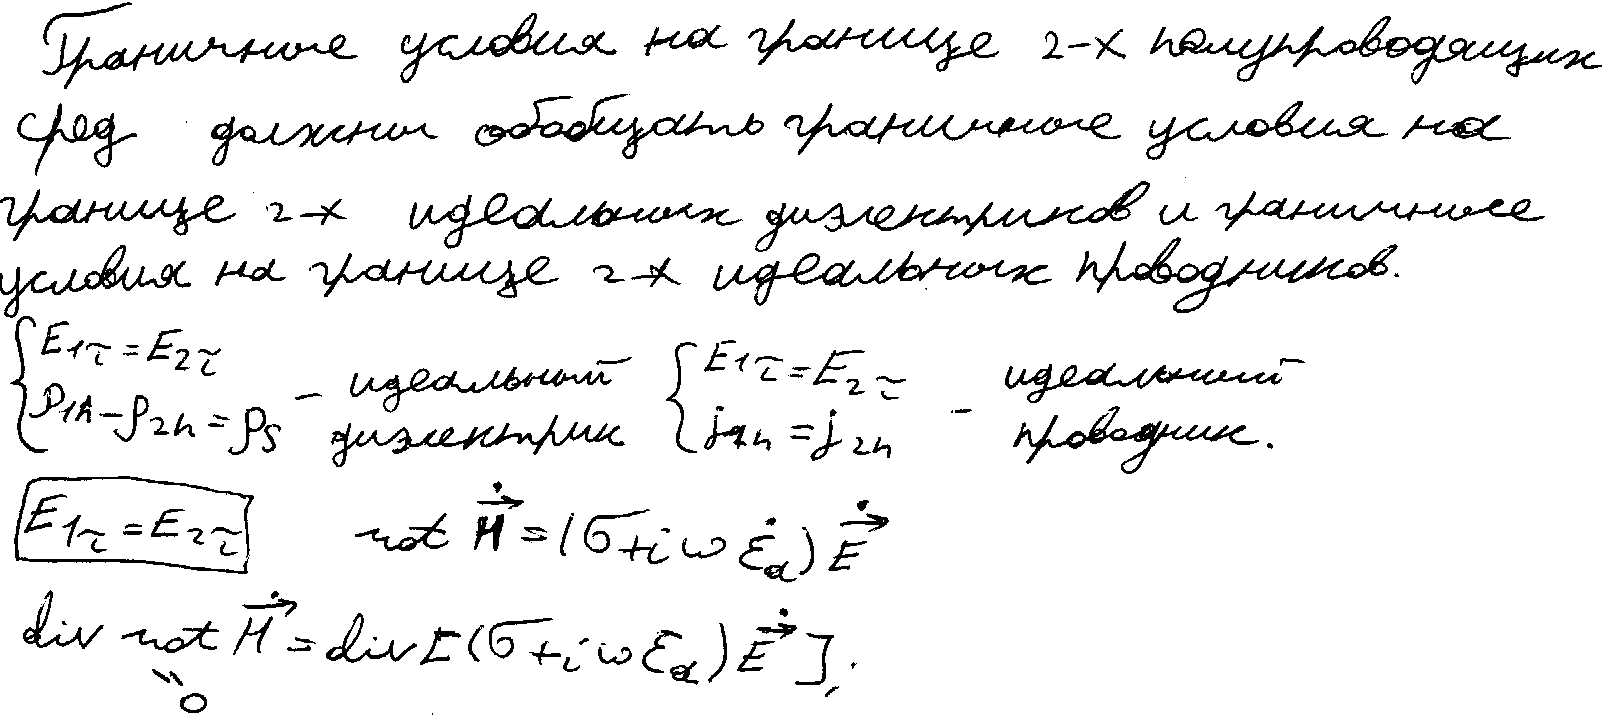 Граничные условия на границе 2-х полупроводящих
сред должны обобщать граничные условия на
границе 2-х идеальных диэлектриков и граничные
условия на границе 2-х идеальных проводников.
{E₁τ = E₂τ
{D₁n - D₂n = ρs - идеальный диэлектрик
{E₁τ = E₂τ
{j₁n = j₂n - идеальный проводник.
E₁τ = E₂τ rot H⃗̇ = (σ + iω ε̇ₐ) E⃗̇
div rot H⃗̇ = div [(σ + iω εₐ) E⃗̇];
" 0